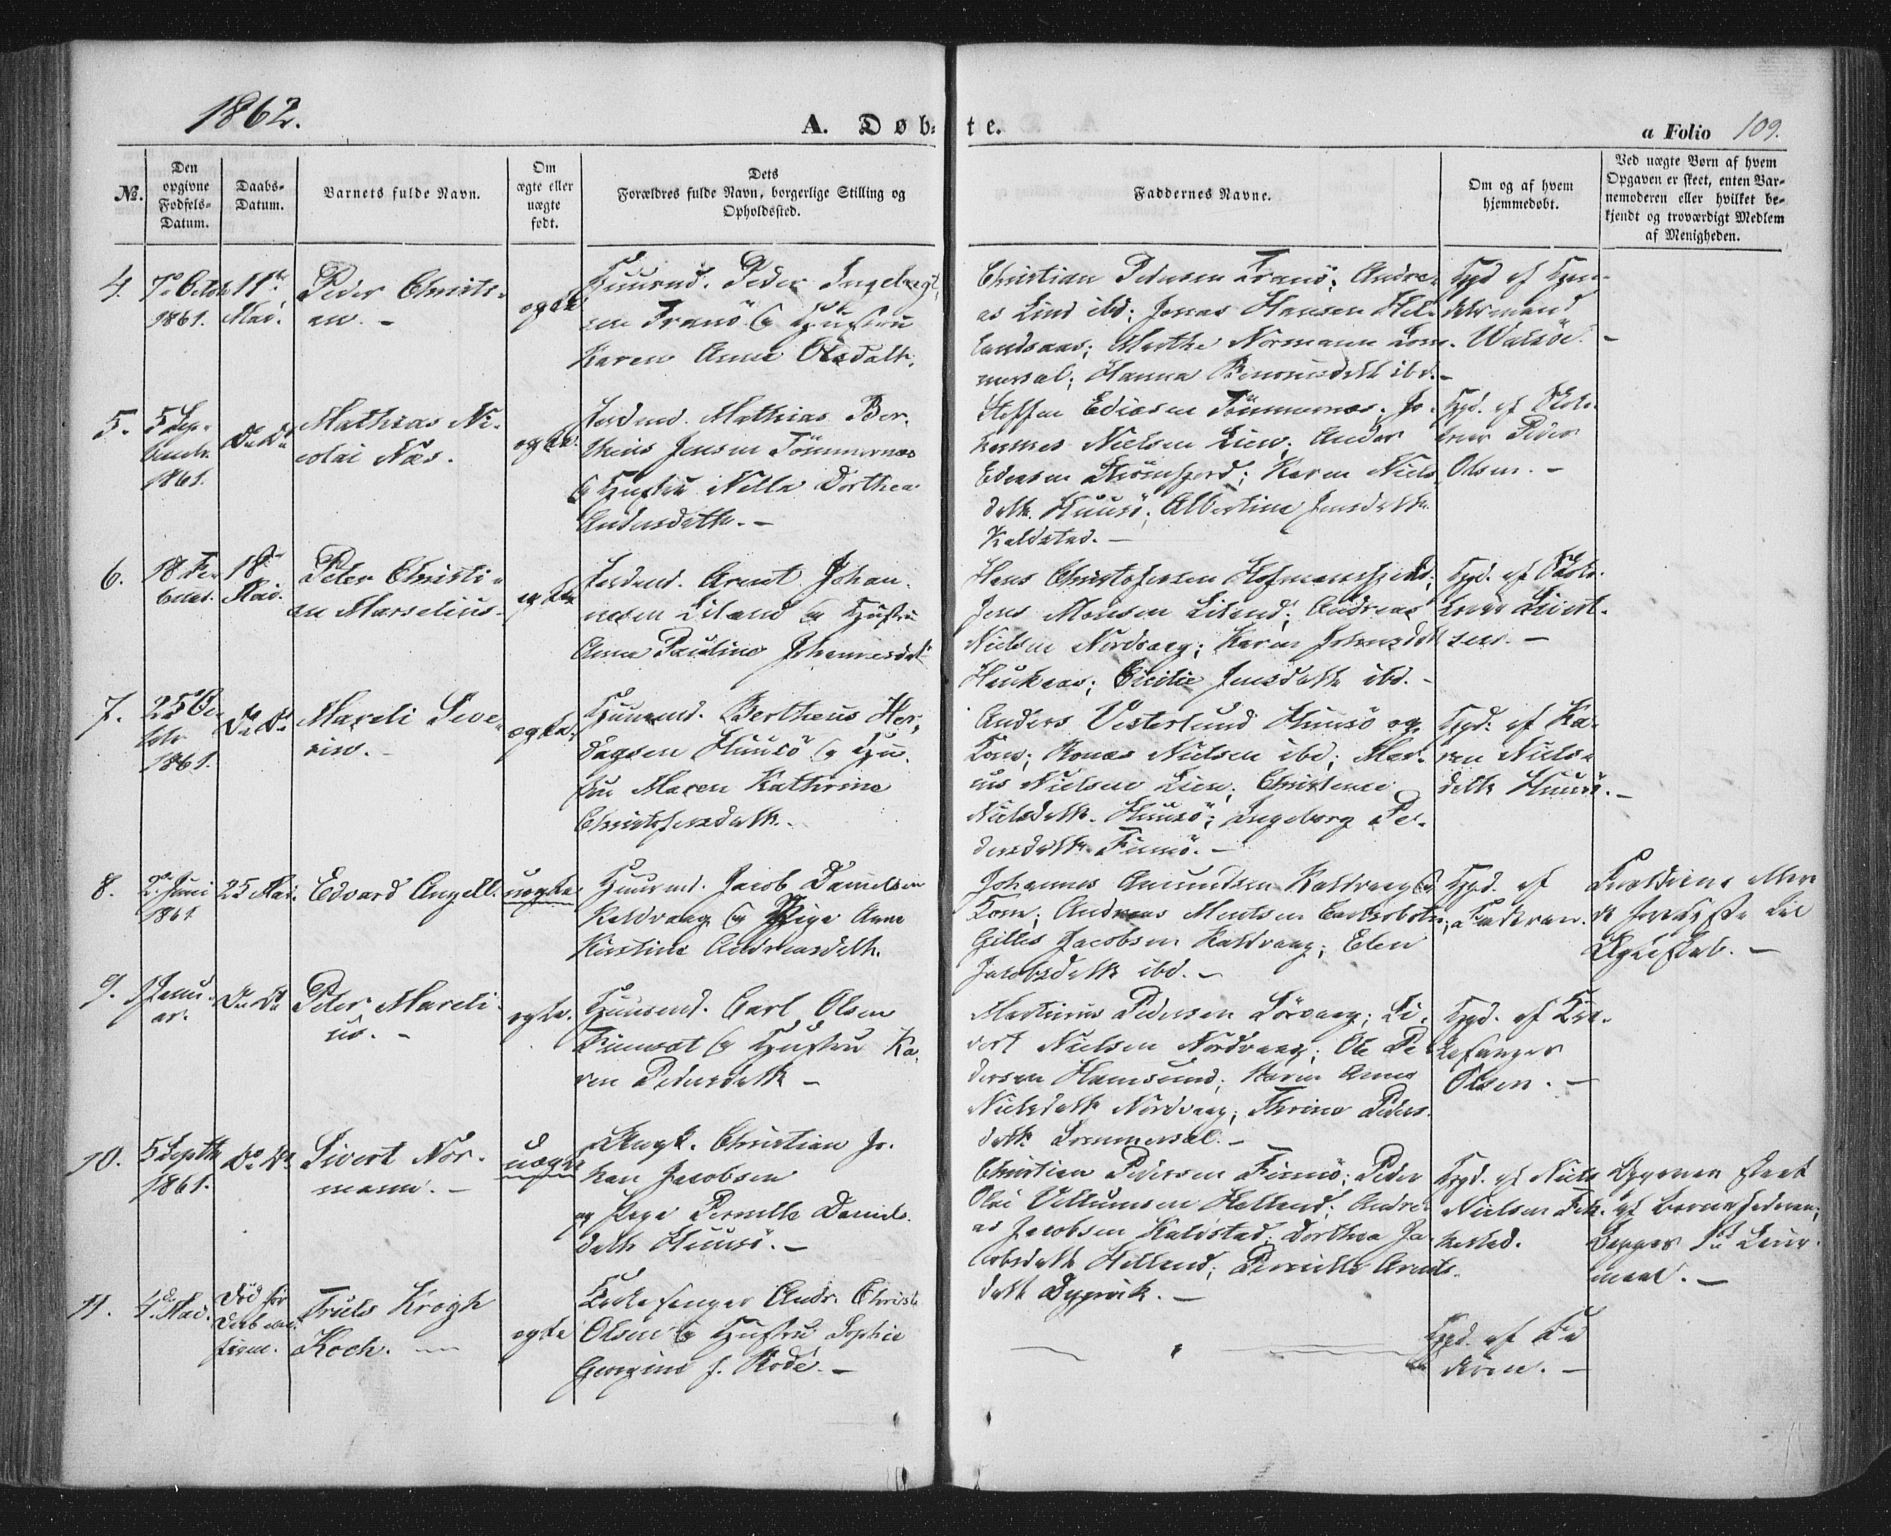 1862.
A. Døb=
te.
a Folio 109.
No.
Den
opgivne
Fødsels=
Datum.
Daabs=
Datum.
Barnets fulde Navn.
Om
ægte eller
uægte
født.
Dets
Forældres fulde Navn, borgerlige Stilling og
Opholdssted.
Faddernes Navne.
Om og af hvem
hjemmedøbt.
Ved uægte Børn af hvem
Opgaven er skeet, enten Bar=
nemoderen eller hvilket be=
kjendt og troværdigt Medlem
af Menigheden.
4.
7de Octob
1861.
11te
Mai.
Peder Christi-
an. -
ægte
Huusmd. Peder Ingebregt
sen Tranö & Hustru
Karen Anna Olsdatt.
Christian Pedersen Tranö; Andre-
as Lind ibd; Jonas Hansen Hel-
landsaas; Marthe Normann Lom-
mersal; Hanna
ibd. -
Hjd af
Watsöe. -
5.
5 Sep-
tembr
1861.
Do Do
Mathias Ni-
colai Näs.
ægte.
Mathias Ber-
theus Jensen Tömmernæs
& Hustru Nilla Dorthea
Andersdatter. -
Steffen Ediasen Tömmernæs; Jo-
hannes Nielsen Lien; Ander
Ediasen Strömfjord; Karen Niels
datt. Huusö; Albertine Jensdattr
Kaldstad. -
Hjd. af
Peder
Olsen. -
6.
18 Fe-
bruar.
18de
Mai.
Peter Christi-
an Marselius.
ægte
Arent Johan-
nesen Liland & Hustru
Anna Pauline Johannesdatt
Hans Christofersen
Jens Monsen Liland; Andreas
Nielsen Nordvaag; Karen Johansdatt
Cicilie Jensdatte ibd. -
Hjd. af
Sivert-
sen. -
7.
25 Oc-
tobr
1861.
Do Do
Mareli Seve-
rin. -
ægte.
Huusmd. Bertheus Her-
dagsen Huusö & Hu-
stru Maren Kathrine
Christofersdatt. -
Anders Vesterlund Huusö og
Kone; Jonas Nielsen ibd; Mar-
ius Nielsen Lien; Christence
Nielsdatt. Huusö; Ingeborg Pe-
dersdatte Finnö. -
Hjd: af Ka-
ren Niels-
datte Huusö. -
8.
2den Juni
1861
25 Mai.
Edvard Angell.
uægte
Huusmd. Jacob Danielsen
Kaldvaag & Pige Anne
Kirstine Andreasdatt.
Johannes Amundsen Kaldvaag &
Kone; Andreas Mentsen
Gilles Jacobsen Kaldvaag; Elen
Jacobsdatte ibd. -
Hjd. af
Faderen.
Forældrene
Ægteskab. -
9.
Janu-
ar.
Do Do
Peter Mareli-
us. -
ægte.
Huusmd. Carl Olsen
& Hustru Ka-
ren Pedersdatte -
Martinus Pedersen Sörvaag; Si-
vert Nielsen Nordvaag; Ole Pe-
dersen Hamsund; Karen Anne
Nielsdatte Nordvaag; Thrine Peders-
datte Lommersal. -
Hjd. af Kir-
kesanger
Olsen. -
10.
5 Septbr
1861.
Do Do
Sivert Nor-
mann. -
uægte
Ungk. Christian Jo-
han Jacobsen
og Pige Pernille Daniels-
datte Huusö. -
Christian Pedersen Finnö; Peder
Olai Villumsen Helland; Andre-
as Jacobsen Kaldstad; Dorthea Ja-
cobsdatte Helland; Pernille Arents-
datt Dypvik. -
Hjd. af Niels
Nielsen
Opgaven skeet
af Barnefaderen;
Begges 1ste Leier-
maal. -
11.
4de Mai.
Död för
Daab
Truls Krogh
Koch. -
ægte
Kirkesanger Andr. Christ.
Olsen & Hustru Sophie
Georgine f. Rode. -
Hjd. af Fa-
deren. -